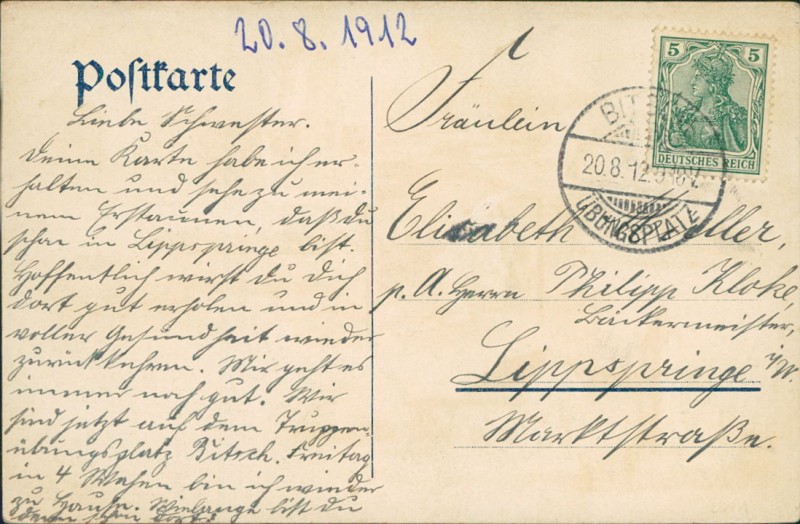 20. 8. 1912
Postkarte
Liebe Schwester.
Deine Karte habe ich er-
halten und sehe zu mei-
nem Erstaunen, daß du
schon in Lippspringe bist.
Hoffentlich wirst du dich
dort gut erholen und in
voller Gesundheit wieder
zurückkehren. Mir geht es
immer noch gut. Wir
sind jetzt auf dem Truppen-
übungsplatz Bitsch. Freitag
in 4 Wochen bin ich wieder
zu Hause. Wielange bist du
denn schon dort?
Fräulein
Elisabeth
p. A. Herrn Philipp Kloke,
Bäckermeister,
Lippspringe i/W.
Marktstraße.
5 5
DEUTSCHES REICH
20.8.12.
ÜBUNGSPLATZ